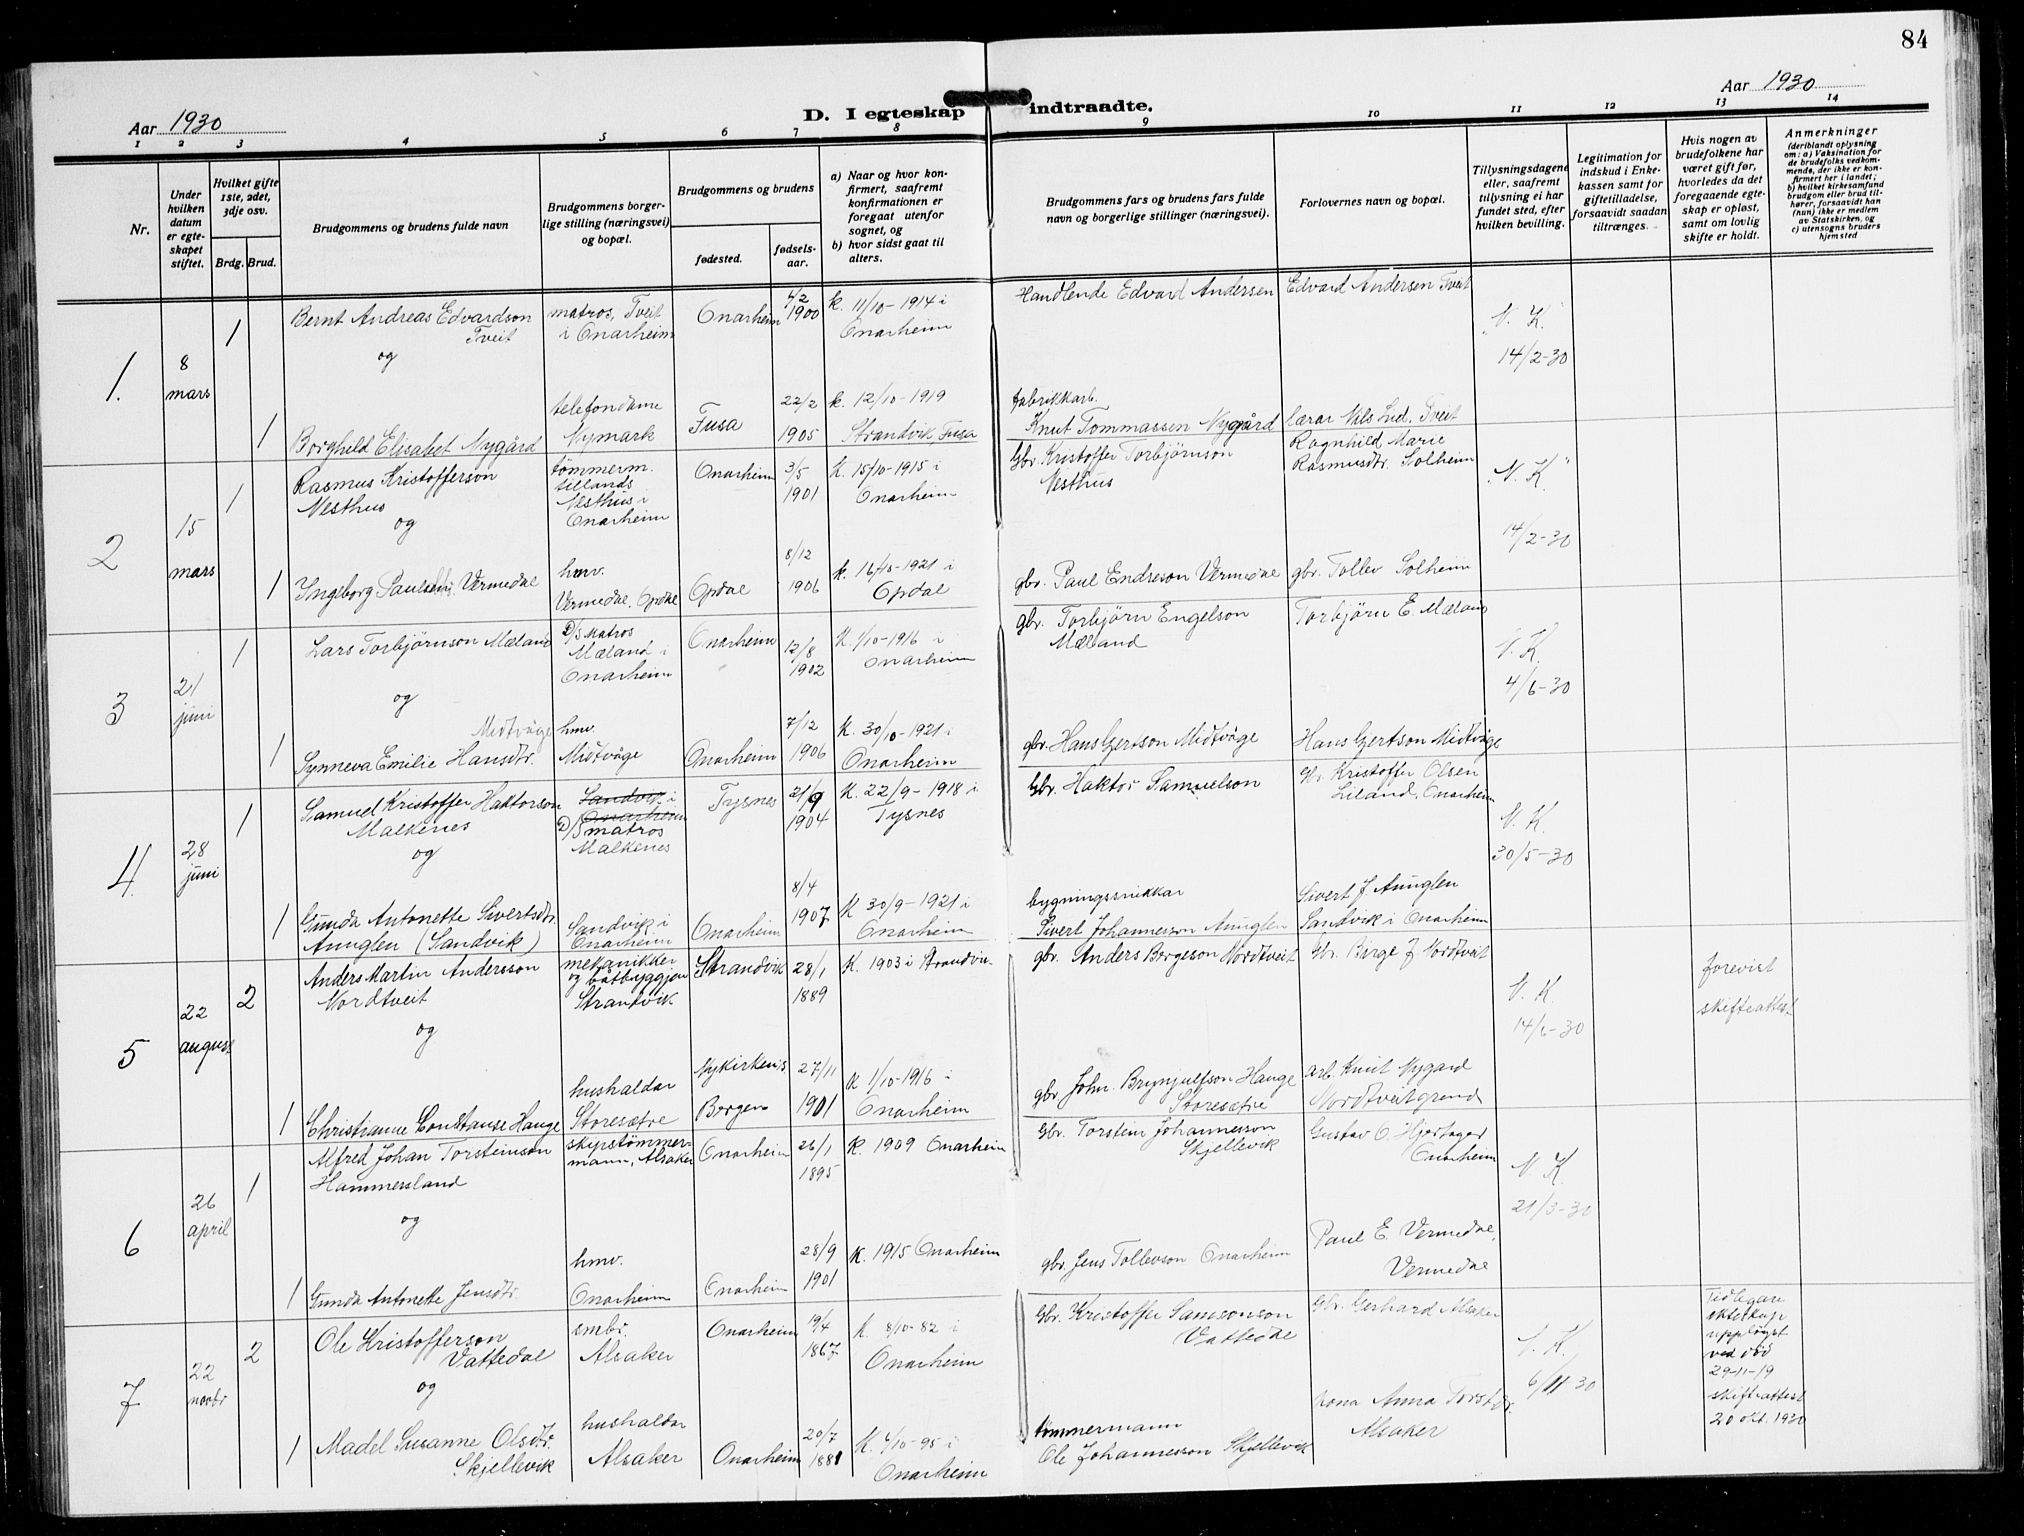 84
Aar 1930
D. I egteskap indtraadte.
Aar 1930
1 2 3 4 5 6 7 8 9 10 11 12 13 14
Nr.
Under
hvilken
datum
er egte-
skapet
stiftet.
Hvilket gifte
1ste, 2det,
3dje osv.
Brdg. Brud.
Brudgommens og brudens fulde navn
Brudgommens borger-
lige stilling (næringsvei)
og bopæl.
Brudgommens og brudens
fødested.
fødsels-
aar.
a) Naar og hvor kon-
firmert, saafremt
konfirmationen er
foregaat utenfor
sognet, og
b) hvor sidst gaat til
alters.
Brudgommens fars og brudens fars fulde
navn og borgerlige stillinger (næringsvei).
Forlovernes navn og bopæl.
Tillysningsdagene
eller, saafremt
tillysning ei har
fundet sted, efter
hvilken bevilling.
Legitimation for
indskud i Enke-
kassen samt for
giftetilladelse,
forsaavidt saadan
tiltrænges.
Hvis nogen av
brudefolkene har
været gift før,
hvorledes da det
foregaaende egte-
skap er opløst,
samt om lovlig
skifte er holdt.
Anmerkninger
(deriblandt oplysning
om: a) Vaksination for
de brudefolks vedkom-
mende, der ikke er kon-
firmert her i landet;
b) hvilket kirkesamfund
brudgom eller brud til-
hører, forsaavidt han
(hun) ikke er medlem
av Statskirken, og
c) utensogns bruders
hjemsted
1.
8
mars
1
Bernt Andreas Edvardson
Tveit
og
matros, Tveit
i Onarheim
Onarheim
4/2
1900
k. 11/10-1914 i
Onarheim
Handlende Edvard Andersen
Edvard Andersen Tveit
"V. K."
14/2-30
1
Borghild Elisabet Nygård
telefondame
Nymark
Fusa
22/2
1905
k. 12/10-1919
Strandvik Fusa
fabrikkarb.
Knut Tommassen Nygård
lærar Nils Lud. Tveit
2
15
mars
1
Rasmus Kristofferson
Nesthus
og
tømmerm.
tillands
Nesthus i
Onarheim
Onarheim
3/5
1901
K. 15/10-1915 i
Onarheim
Gbr. Kristoffer Torbjørnson
Nesthus
Ragnhild Marie
Rasmusdtr. Solheim
"V. K."
14/2-30
1
Ingeborg Paulsdtr. Vermedal
hmv.
Vermedal, Opdal
Opdal
8/12
1906
k. 16/10-1921 i
Opdal
gbr. Paul Endreson Vermedal
gbr. Tollev Solheim
3
21
juni
1
Lars Torbjørnson Mæland
og
D/S Matros
Mæland i
Onarheim
Onarheim
12/8
1902
K. 1/10-1916 i
Onarheim
gbr. Torbjørn Engelson
Mæland
Torbjørn E. Mæland
V. K.
4/6-30
1
Midtvåge
Synneva Emilie Hansdtr.
hmv.
Midtvåge
Onarheim
7/12
1906
K. 30/10-1921 i
Onarheim
gbr. Hans Gjertson Midtvåge
Hans Gjertson Midtvåge
4.
28
juni
1
Samuel Kristoffer Haktorson
Malkenes
og
Sandvik i
Onarheim
D/S matros
Malkenes
Tysnes
21/9
1904
K. 22/9-1918 i
Tysnes
Gbr. Haktor Samuelson
Gbr Kristoffer Olsen
Liland, Onarheim
V. K.
30/5-30
1
Gunda Antonette Sivertsdtr.
Aunglen (Sandvik)
Sandvik i
Onarheim
Onarheim
8/4
1907
K 30/9-1921 i
Onarheim
bygningssnikkar
Sivert Johannesson Aunglen
Sivert J. Aunglen
Sandvik i Onarheim
5
22
august
2
Anders Martin Andersson
Nordtveit
og
mekanikker
og båtbyggjar
Strandvik
Strandvik
28/1
1889
K. 1903 i Strandvik
gbr. Anders Borgeson Nordtveit
Gbr. Birge J Nordtveit
V. K.
14/6-30
forevist
skifteattest
1
Christianne Constanse Hauge
hushaldar
Storesætre
Nykirkens
Bergen
27/11
1901
K 1/10-1916 i
Onarheim
gbr. John Brynjulfson Hauge
Storesætre
arb. Knut Nygard
Nordtveitgrend
6
26
april
1
Alfred Johan Torsteinson
Hammersland
og
skipstømmer-
mann, Alsaker
Onarheim
26/1
1895
k. 1909 Onarheim
Gbr. Torstein Johannesson
Skjellevik
Gustav O. Hjortager
Onarheim
V. K
21/3-30
1
Gunda Antonette Jensdtr.
hmv.
Onarheim
Onarheim
28/9
1901
K. 1915 Onarheim
gbr. Jens Tollevson Onarheim
Paul E. Vermedal,
Vermedal
7
22
novbr
2
Ole Kristofferson
Vattedal
og
smbr.
Alsaker
Onarheim
19/4
1867
K. 8/10-82 i
Onarheim
Gbr. Kristoffer Samsonson
Vattedal
Gbr. Gerhard Alsaker
V. K.
6/11 30
Tidlegare
ekteskap
uppløyst
ved død
29-11-19
skifteattest
20 okt. 1930
1
Madel Susanne Olsdtr.
Skjellevik
hushaldar
Alsaker
Onarheim
20/7
1881
K. 4/10-95 i
Onarheim
tømmermann
Ole Johannesson Skjellevik
kona Anna Torstdr.
Alsaker